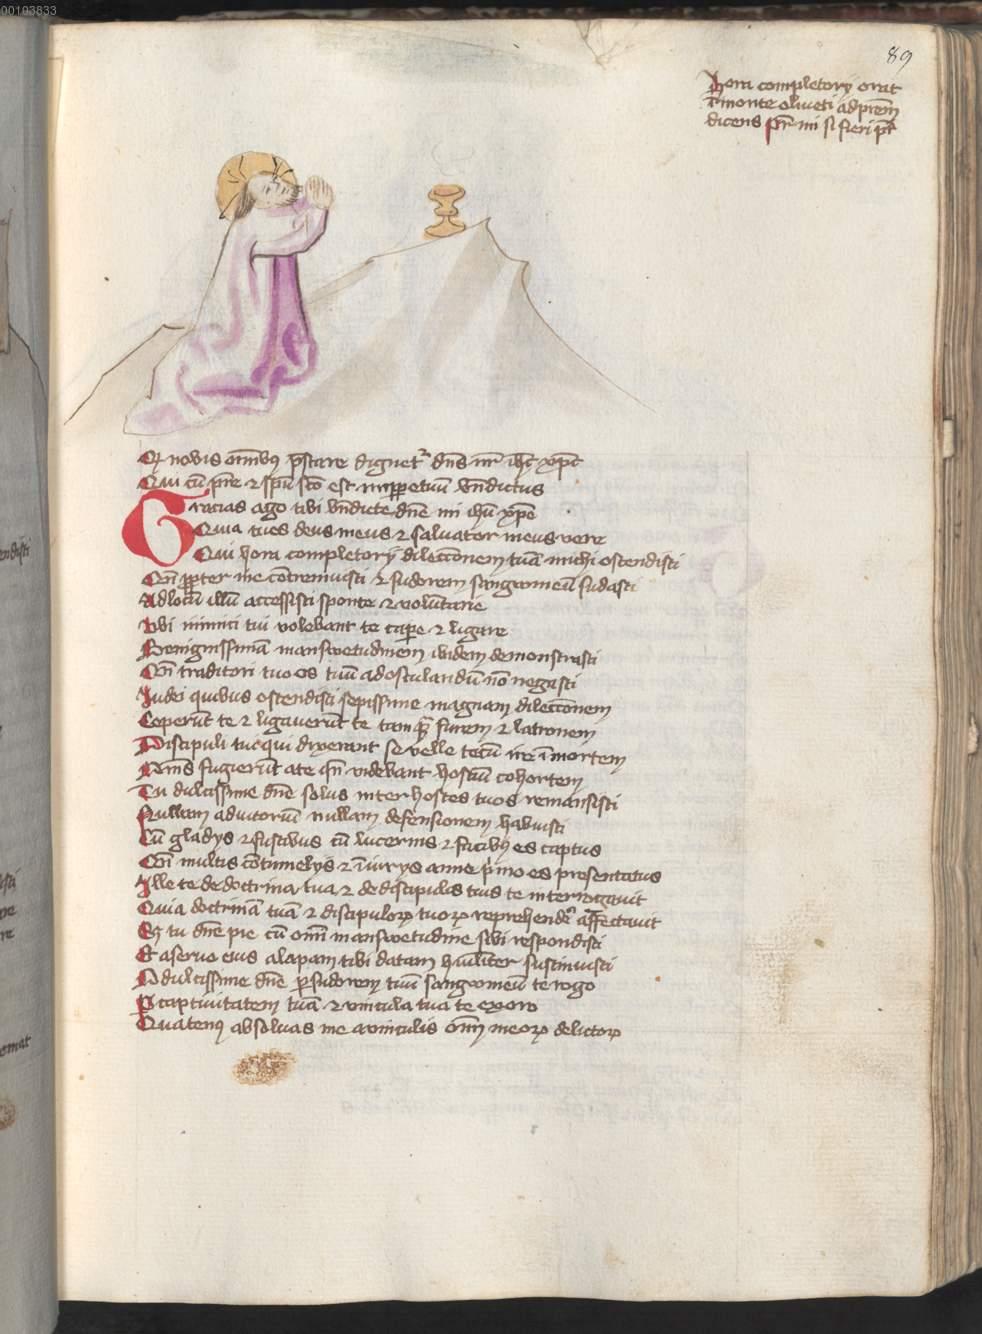 00103833
89
Hora completorÿ orat
ī monte oliueti ad prēm
dicens pr̄ mi si fieri pt̄
Qz nobis oīmbꝰ prestare dignetr dns nr̄ ihc xpc
Qui cū pr̄e ⁊ spū sco est imppetuū bn̄dictus
Gracias ago tibi bn̄dicte dn̄e mi ihū xpē
Quia tu es deus meus ⁊ saluator meus vere
Qui hora completorÿ dileccōnem tuā michi ostendisti
Cū ppter me cōtremuisti ⁊ sudorem sangwineū sudasti
Ad locū illū accessisti sponte ⁊ volūtarie
Vbi inimici tui volebant te capere ⁊ ligare
Benignissimā manswetudinem ibidem demonstrasti
Cū traditori tuo os tuū ad osculandū nō negasti
Iudei quibus ostendisti sepissime magnam dileccōnem
Ceperūt te ⁊ ligauerūt te tamqȝ furem ⁊ latronem
Discipuli tui qui dixerant se velle tecū ire ī mortem
Om̄s fugierūt a te qn̄ videbant hostiū cohortem
Tu dulcissime dn̄e solus inter hostes tuos remansisti
Nullam adiutoriū nullam defensionem habuisti
Cū gladÿs ⁊ fustibus cū lucernis ⁊ facibꝰ es captus
Cū multis cōtumelÿs ⁊ īiurÿs anne primo es presentatus
Ille te de doctrina tua ⁊ de discipulis tuis te interrogauit
Quia doctrinā tuā ⁊ discipuloꝝ tuoꝝ reprehendere affectauit
Sz tu dn̄e pie cū om̄i manswetudine sibi respondisti
Et a seruo eius alapam tibi datam hūiliter sustinuisti
O dulcissime dn̄e per sudorem tuū sangwineū te rogo
Per captiuitatem tuā ⁊ vincula tua te exoro
Quatenꝰ absoluas me a vinculis om̄i meoꝝ delictoꝝ